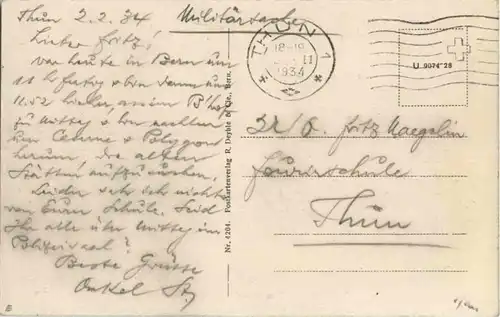 Thun 2.2.34
Militärsache
Lieber Fritz!
war heute in Bern um
11 h fertig & bin dann um
11.52 hieher an im B'hof
zu Mittag & bin nachher
zur Caserne & Polygon
herum, die alten
Stätten aufzusuchen.
Leider sehe ich nichts
von Eurer Schule. Seid
Ihr alle über Mittag im
Polizeisaal?
Beste Grüsse
Onkel
THUN 1
18-19
II
1934
U 9074*28
Nr. 4204. Postkartenverlag R. Deyhle & Cie., Bern.
Fritz Naegelin
Fourierschule
Thun